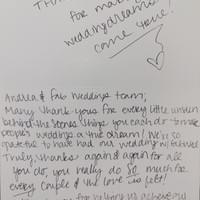 for ma
wedding dreams
come true!
Andrea & Fab Weddings team;
Many thank yous for every little unseen
behind the scenes things you each do to make
people's weddings a true dream! We're so
grateful to have had our wedding w/
Truly, thanks again & again for all
you do, you really do so much for
every couple & the love is felt!
for helping us achieve our